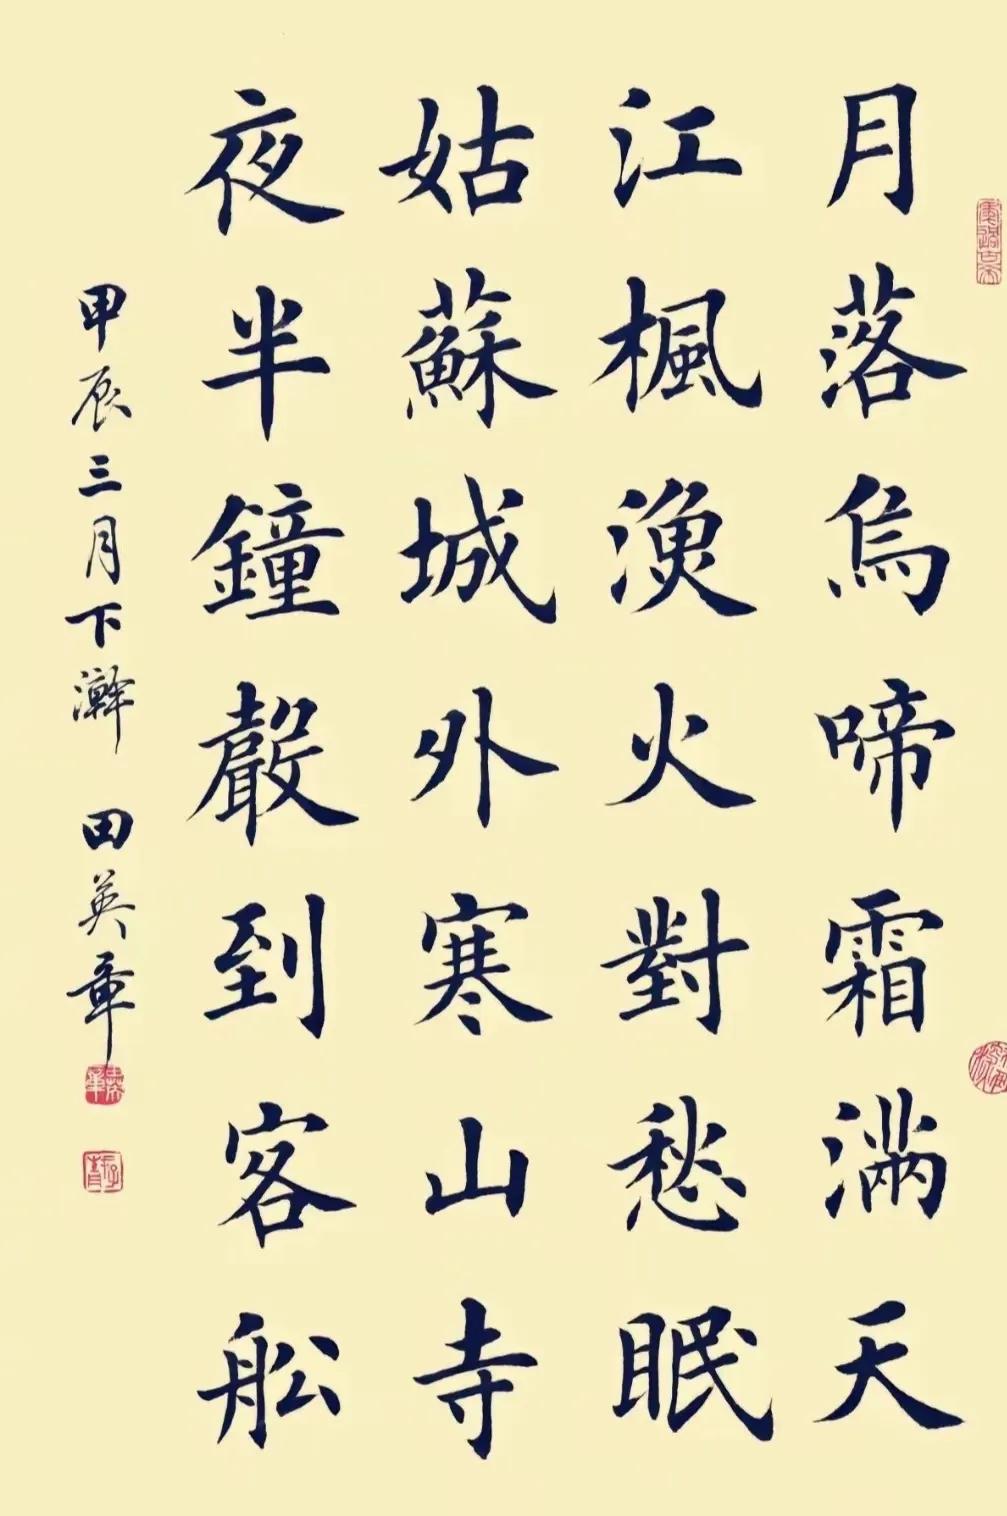 月落烏啼霜滿天
江楓漁火對愁眠
姑蘇城外寒山寺
夜半鐘聲到客舩
甲辰三月下澣 田英章